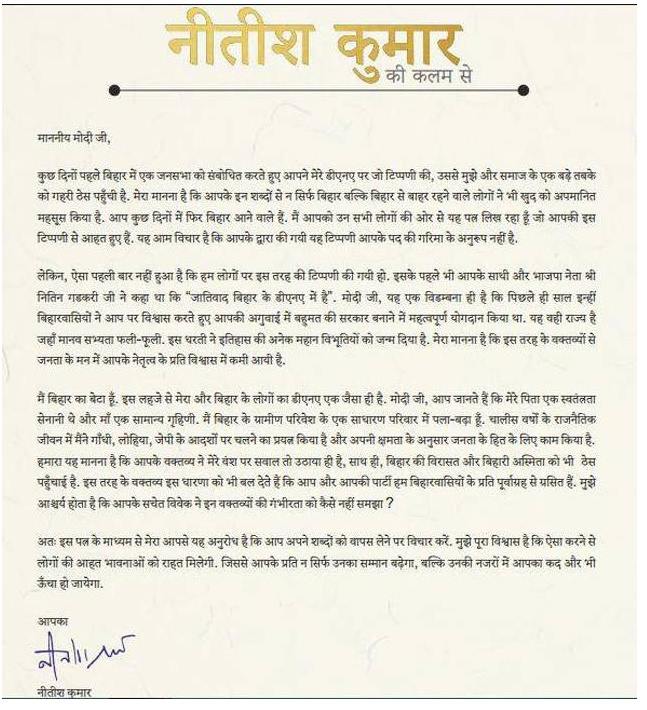 नीतीश कुमार
की कलम से
माननीय मोदी जी,
कुछ दिनों पहले बिहार में एक जनसभा को संबोधित करते हुए आपने मेरे डीएनए पर जो टिप्पणी की, उससे मुझे और समाज के एक बड़े तबके
को गहरी ठेस पहुँची है. मेरा मानना है कि आपके इन शब्दों से न सिर्फ बिहार बल्कि बिहार से बाहर रहने वाले लोगों ने भी खुद को अपमानित
महसूस किया है. आप कुछ दिनों में फिर बिहार आने वाले हैं. मैं आपको उन सभी लोगों की ओर से यह पत्र लिख रहा हूँ जो आपकी इस
टिप्पणी से आहत हुए हैं. यह आम विचार है कि आपके द्वारा की गयी यह टिप्पणी आपके पद की गरिमा के अनुरूप नहीं है.
लेकिन, ऐसा पहली बार नहीं हुआ है कि हम लोगों पर इस तरह की टिप्पणी की गयी हो. इसके पहले भी आपके साथी और भाजपा नेता श्री
नितिन गडकरी जी ने कहा था कि “जातिवाद बिहार के डीएनए में है”. मोदी जी, यह एक विडम्बना ही है कि पिछले ही साल इन्हीं
बिहारवासियों ने आप पर विश्वास करते हुए आपकी अगुवाई में बहुमत की सरकार बनाने में महत्वपूर्ण योगदान किया था. यह वही राज्य है
जहाँ मानव सभ्यता फली-फूली. इस धरती ने इतिहास की अनेक महान विभूतियों को जन्म दिया है. मेरा मानना है कि इस तरह के वक्तव्यों से
जनता के मन में आपके नेतृत्व के प्रति विश्वास में कमी आयी है.
मैं बिहार का बेटा हूँ. इस लहजे से मेरा और बिहार के लोगों का डीएनए एक जैसा ही है. मोदी जी, आप जानते हैं कि मेरे पिता एक स्वतंत्रता
सेनानी थे और माँ एक सामान्य गृहिणी. मैं बिहार के ग्रामीण परिवेश के एक साधारण परिवार में पला-बढ़ा हूँ. चालीस वर्षों के राजनैतिक
जीवन में मैंने गाँधी, लोहिया, जेपी के आदर्शों पर चलने का प्रयत्न किया है और अपनी क्षमता के अनुसार जनता के हित के लिए काम किया है.
हमारा यह मानना है कि आपके वक्तव्य ने मेरे वंश पर सवाल तो उठाया ही है, साथ ही, बिहार की विरासत और बिहारी अस्मिता को भी ठेस
पहुँचाई है. इस तरह के वक्तव्य इस धारणा को भी बल देते हैं कि आप और आपकी पार्टी हम बिहारवासियों के प्रति पूर्वाग्रह से ग्रसित हैं. मुझे
आश्चर्य होता है कि आपके सचेत विवेक ने इन वक्तव्यों की गंभीरता को कैसे नहीं समझा ?
अतः इस पत्र के माध्यम से मेरा आपसे यह अनुरोध है कि आप अपने शब्दों को वापस लेने पर विचार करें. मुझे पूरा विश्वास है कि ऐसा करने से
लोगों की आहत भावनाओं को राहत मिलेगी. जिससे आपके प्रति न सिर्फ उनका सम्मान बढ़ेगा, बल्कि उनकी नजरों में आपका कद और भी
ऊँचा हो जायेगा.
आपका
नीतीश कुमार